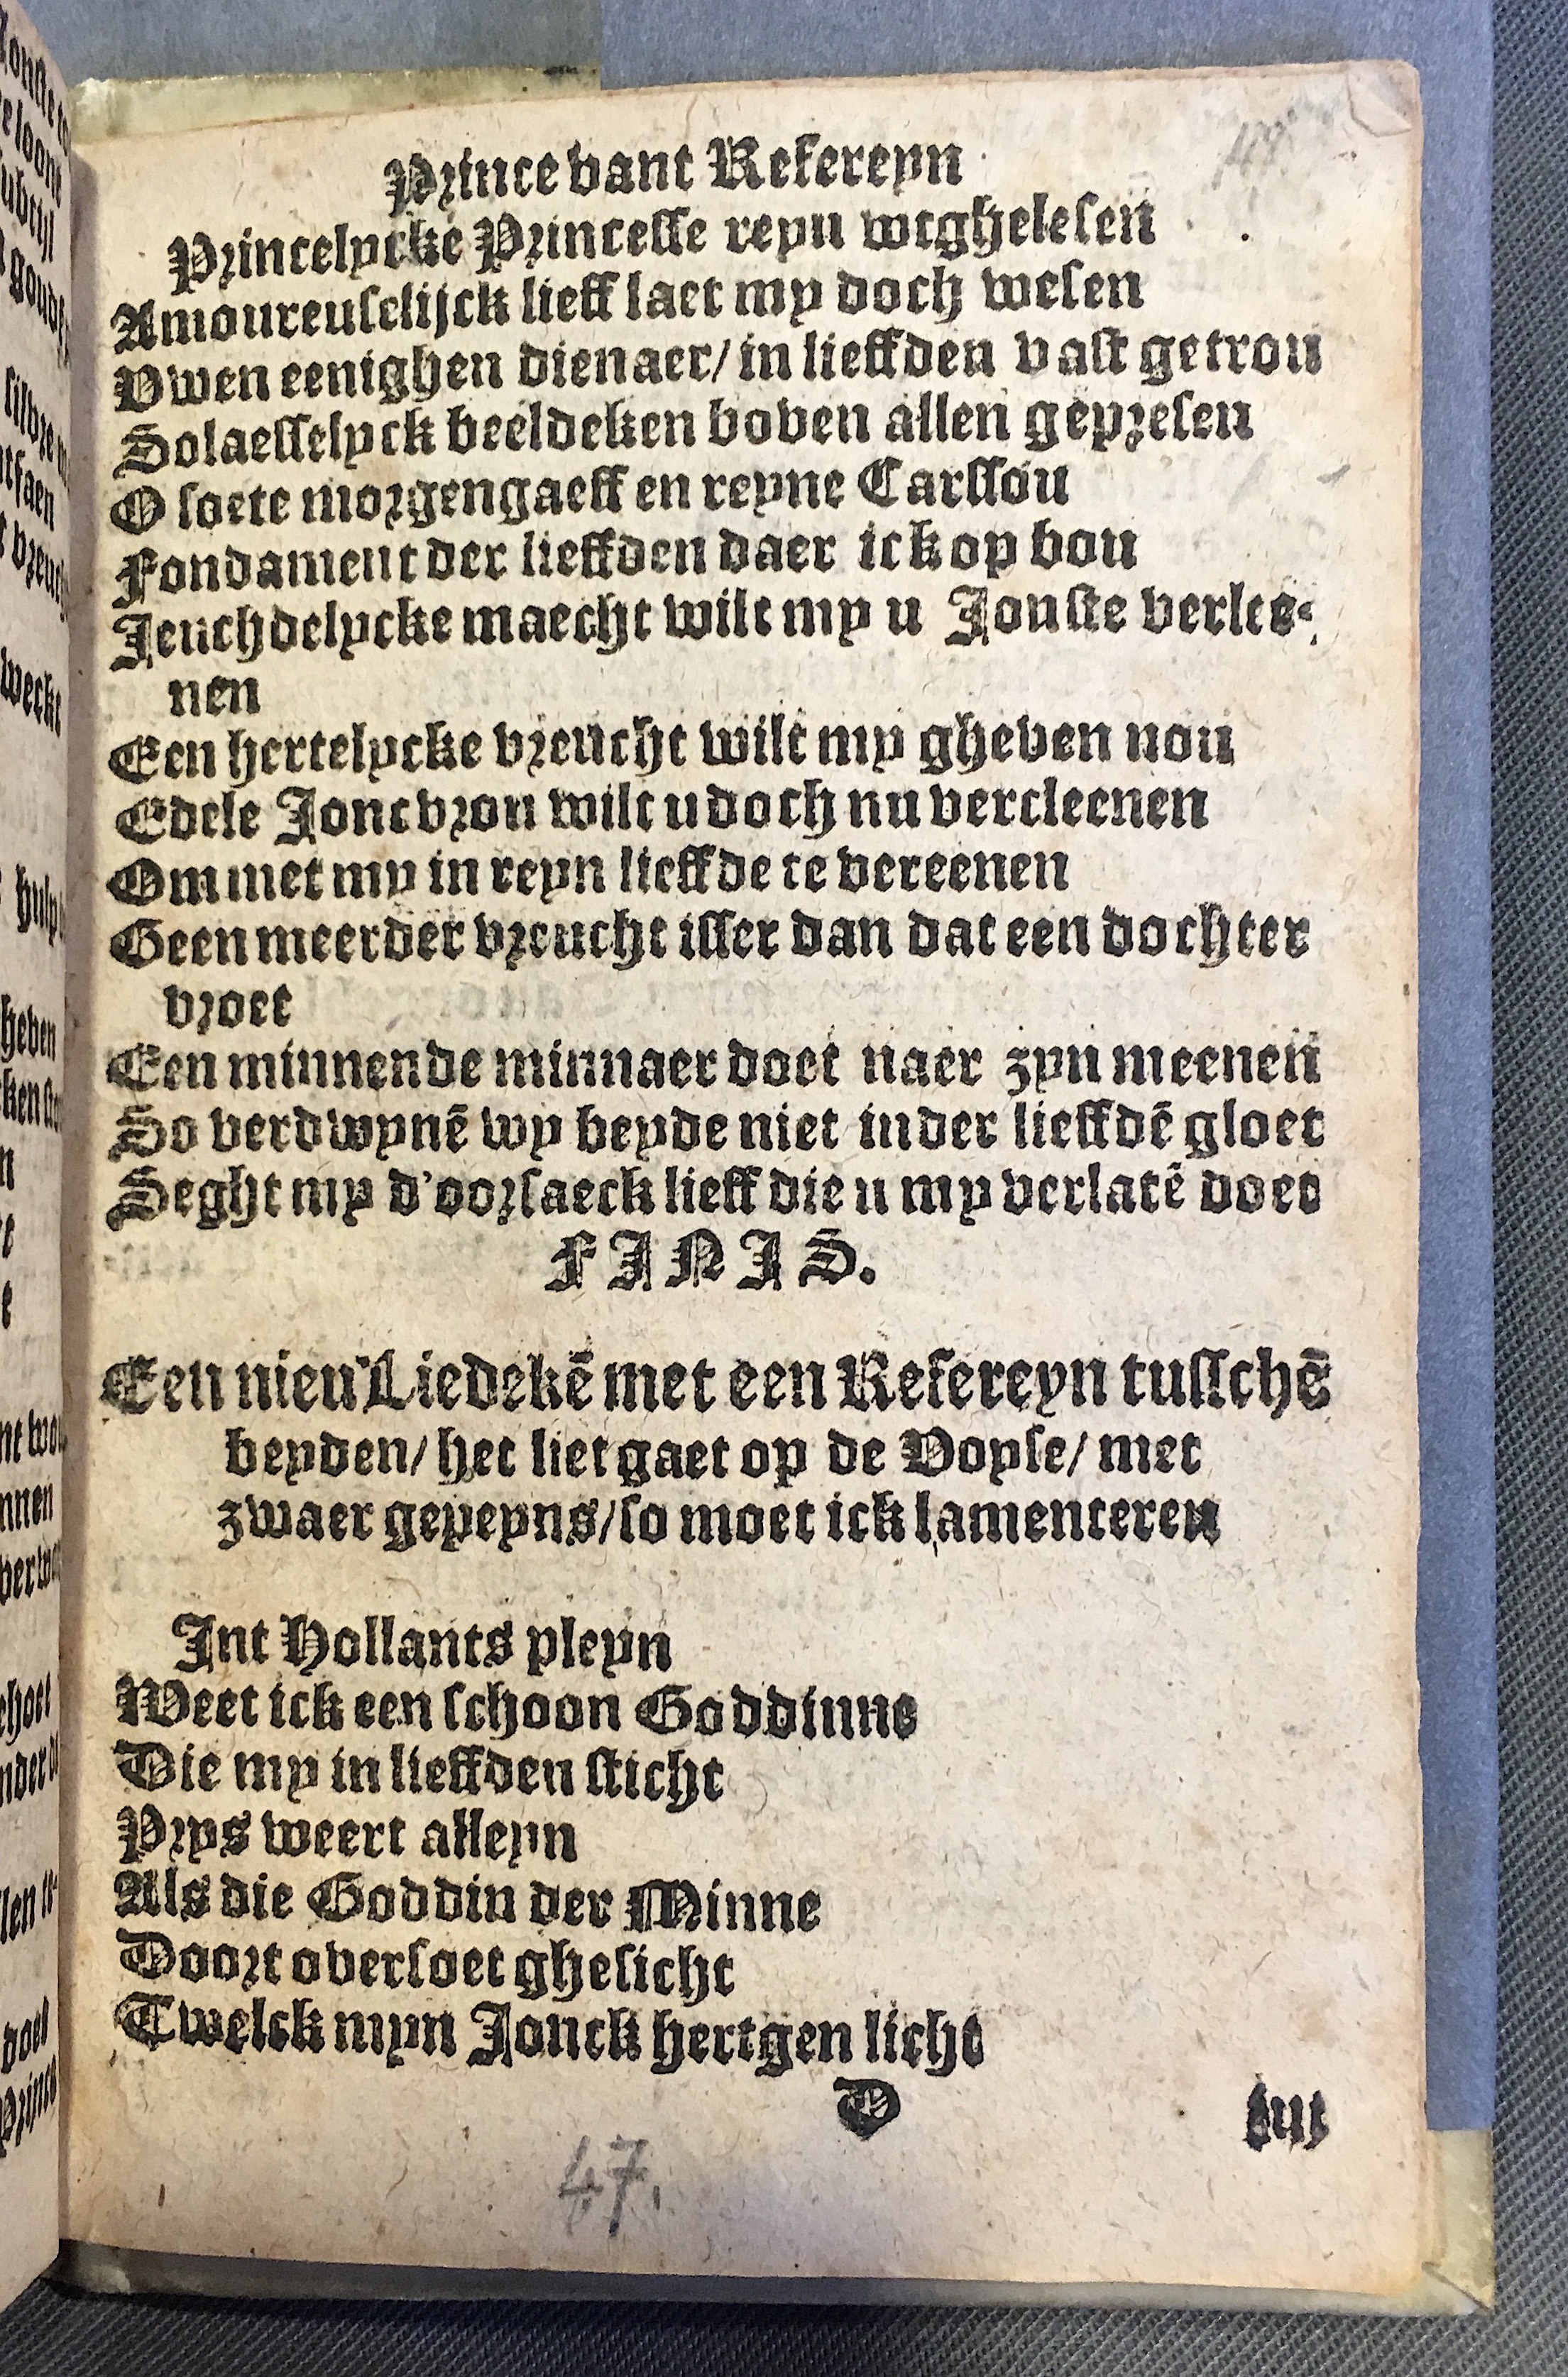 Prince vant Refereyn
Princelycke Princesse reyn wtghelesen
Amoureuselijck lieff laet my doch wesen
Vwen eenighen dienaer/ in lieffden vast getrou
Solaesselyck beeldeken boven allen gepresen
O soete morgengaeff en reyne Carssou
Fondament der lieffden daer ick op bou
Jeuchdelycke maecht wilt my u Jonste verlee-
nen
Een hertelycke vreucht wilt my gheven nou
Edele Joncvrou wilt u doch nu vercleenen
Om met my in reyn lieffde te vereenen
Geen meerder vreucht isser dan dat een dochter
vroet
Een minnende minnaer doet naer zyn meenen
So verdwynē wy beyde niet in der lieffdē gloet
Seght my d'oorsaeck lieff die u my verlatē doet
FINIS.
Een nieu Liedekē met een Refereyn tusschē
beyden/ het liet gaet op de Voyse/ met
zwaer gepeyns/ so moet ick lamenteren
Int Hollants pleyn
Weet ick een schoon Goddinne
Die my in lieffden sticht
Prys weert alleyn
Als die Goddin der Minne
Doort oversoet ghesicht
Twelck myn Jonck hertgen licht
D
tut
47.